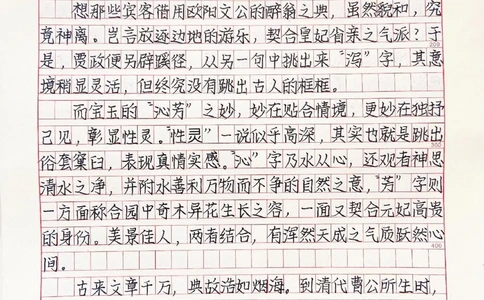 想那些宾客借用欧阳文公的醉翁之典，虽然貌和，究
竟神离。岂言放逐边地的游乐，契合皇妃省亲之气派？于
是，贾政便另辟蹊径，从另一句中挑出来“泻”字，其意
境稍显灵活，但终究没有跳出古人的框框。
而宝玉的“沁芳”之妙，妙在贴合情境，更妙在独抒
己见，彰显性灵。“性灵”一说似乎高深，其实也就是跳出
俗套窠臼，表现真情实感。“沁”字乃水从心，还观者神思
清水之净，并附水善利万物而不争的自然之意，“芳”字则
一方面称合园中奇木异花生长之容，一面又契合元妃高贵
的身份。美景佳人，两者结合，有浑然天成之气质跃然心
间。
古来文章千万，典故浩如烟海。到清代曹公所生时，
300
400